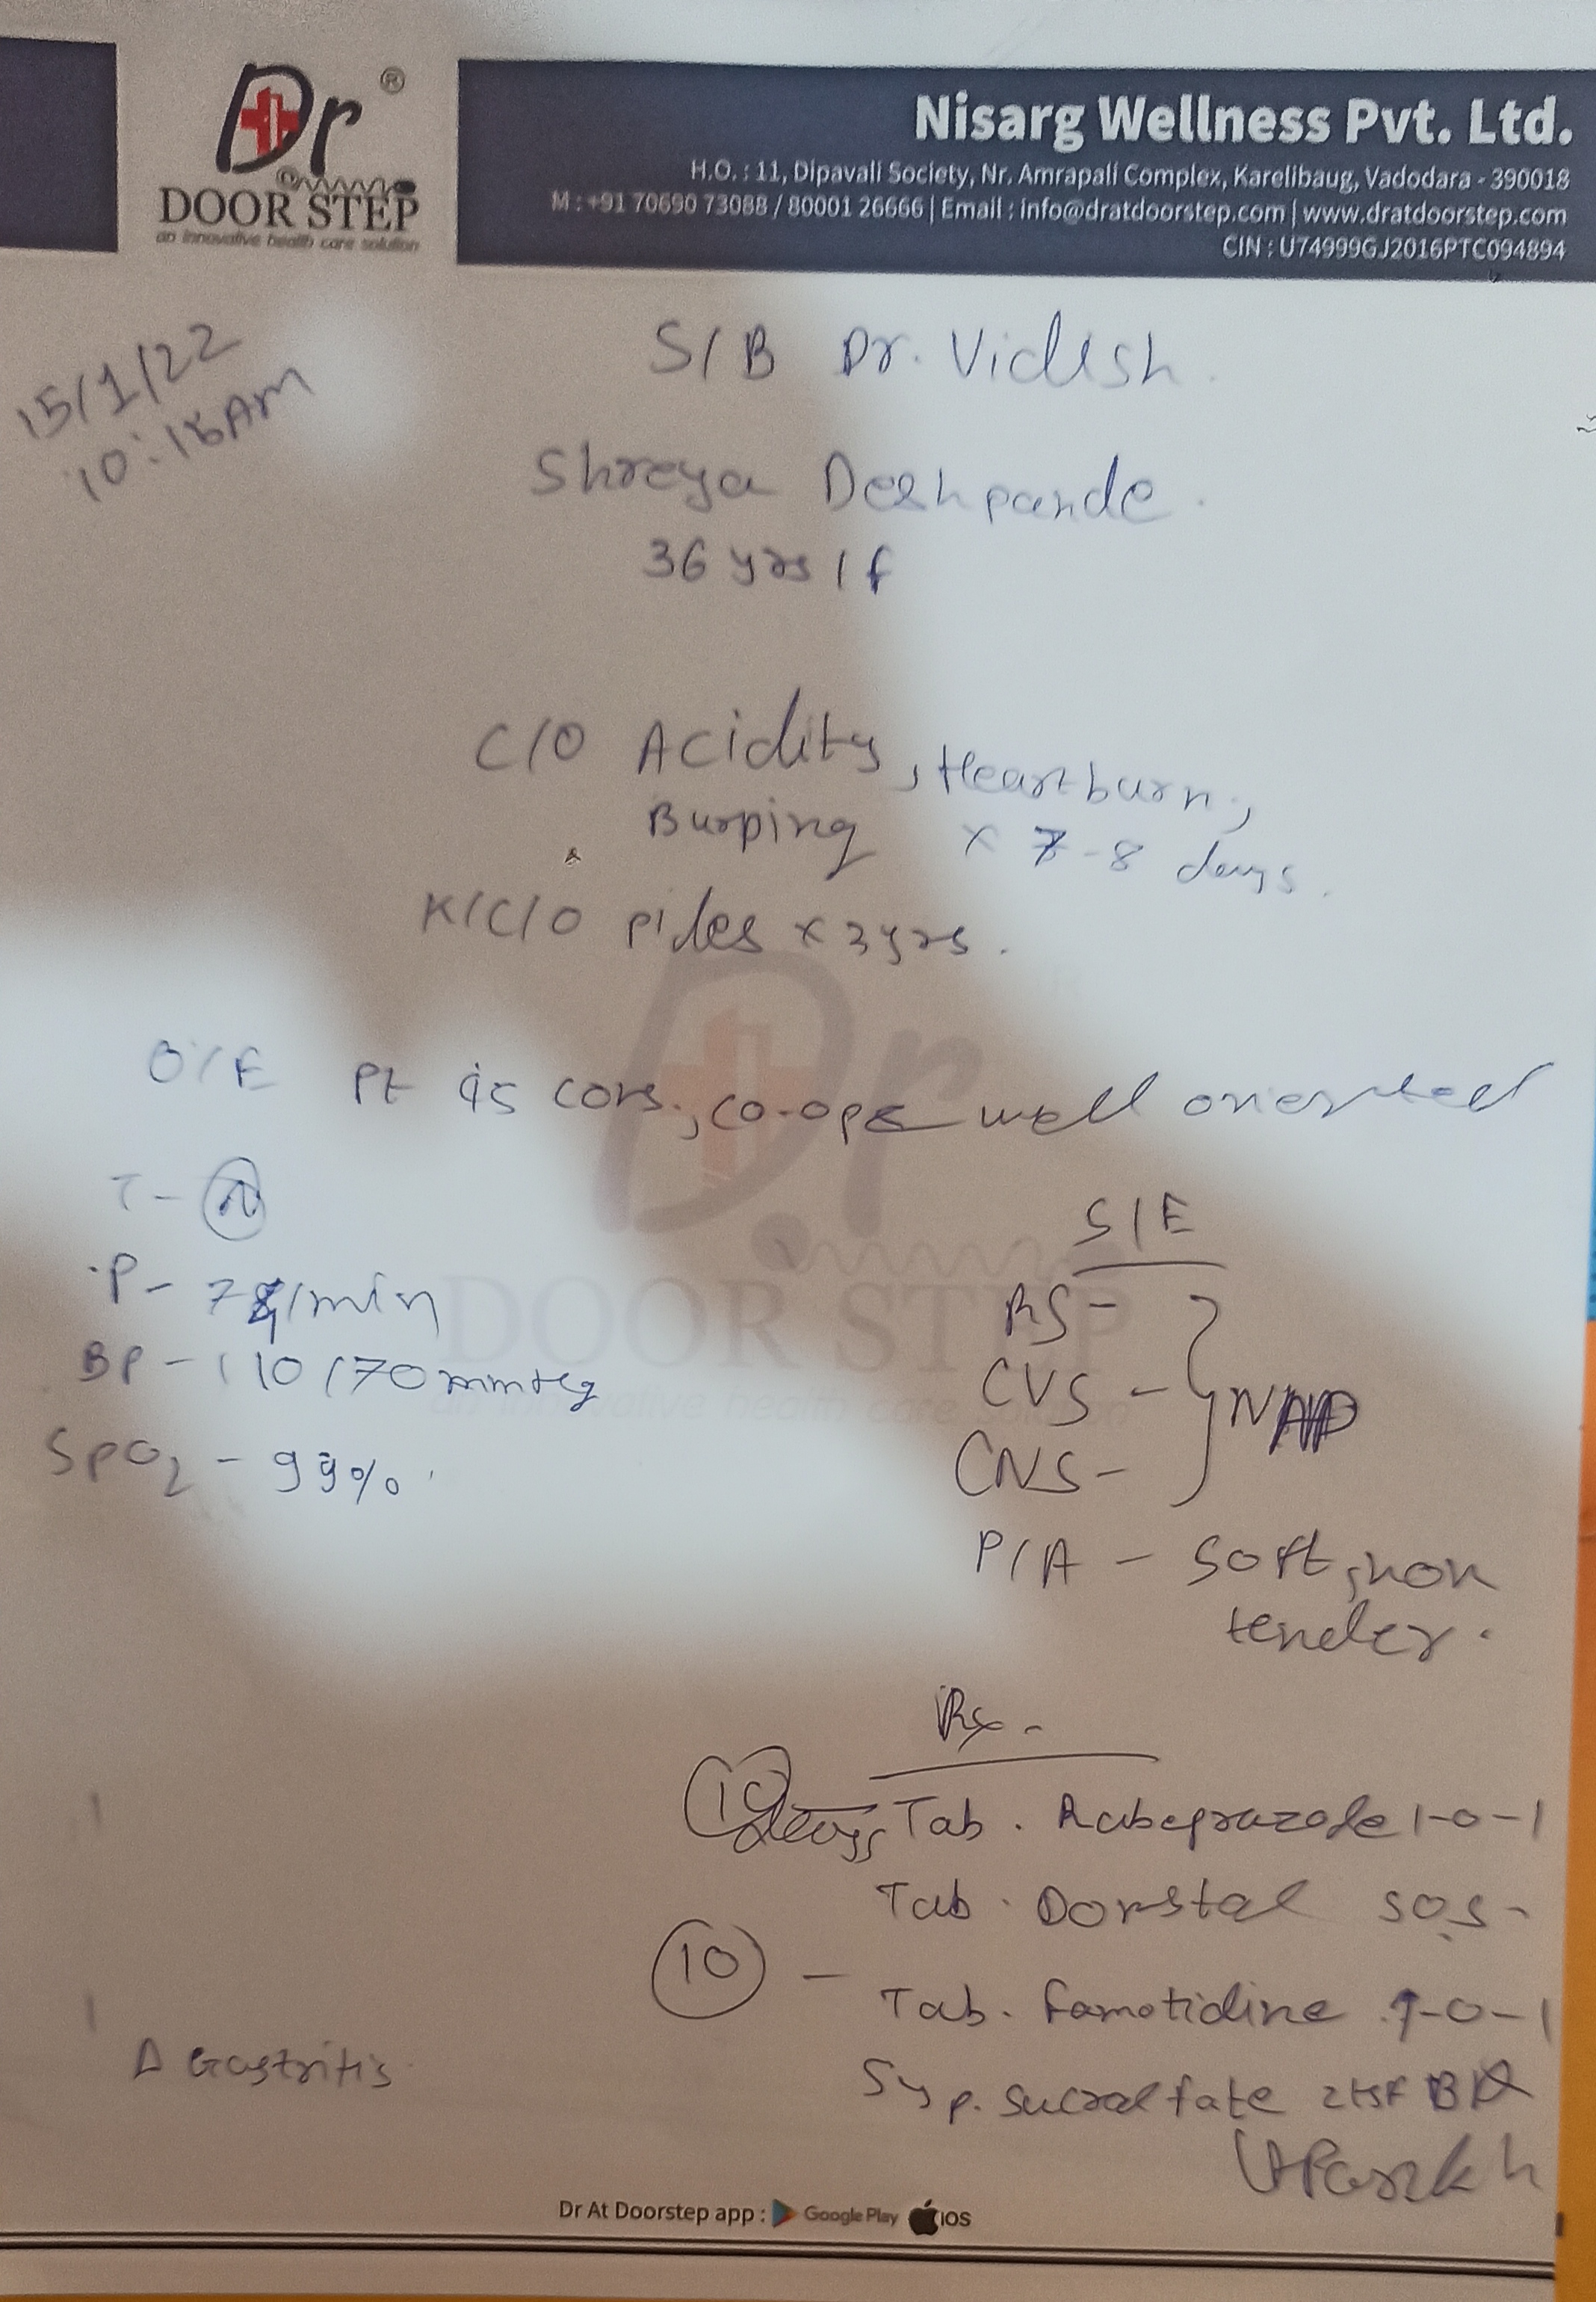 Dr ®
DOOR STEP
an innovative health care solution
Nisarg Wellness Pvt. Ltd.
H.O. : 11, Dipavali Society, Nr. Amrapali Complex, Karelibaug, Vadodara - 390018
M : +91 70690 73088 / 80001 26666 | Email : info@dratdoorstep.com | www.dratdoorstep.com
CIN : U74999GJ2016PTC094894
15/1/22
S/B Dr. Vidish.
Shreya Deshpande.
36 yrs / f
C/O Acidity, Heartburn,
Burping x 7-8 days.
K/C/O piles x 3 yrs.
O/E Pt is cons., co-op & well oriented
T - N
P - /min
BP - 110/70 mmHg
SpO2 - 99%
S/E
RS -
CVS -
CNS -
NAD
P/A - Soft, non
tender.
Rx -
10 days Tab. Rabeprazole 1-0-1
Tab. Domstal SOS -
10 - Tab. Famotidine 1-0-1
Syp. Sucralfate 2tsf
Δ Gastritis
Parikh
Dr At Doorstep app : Google Play iOS